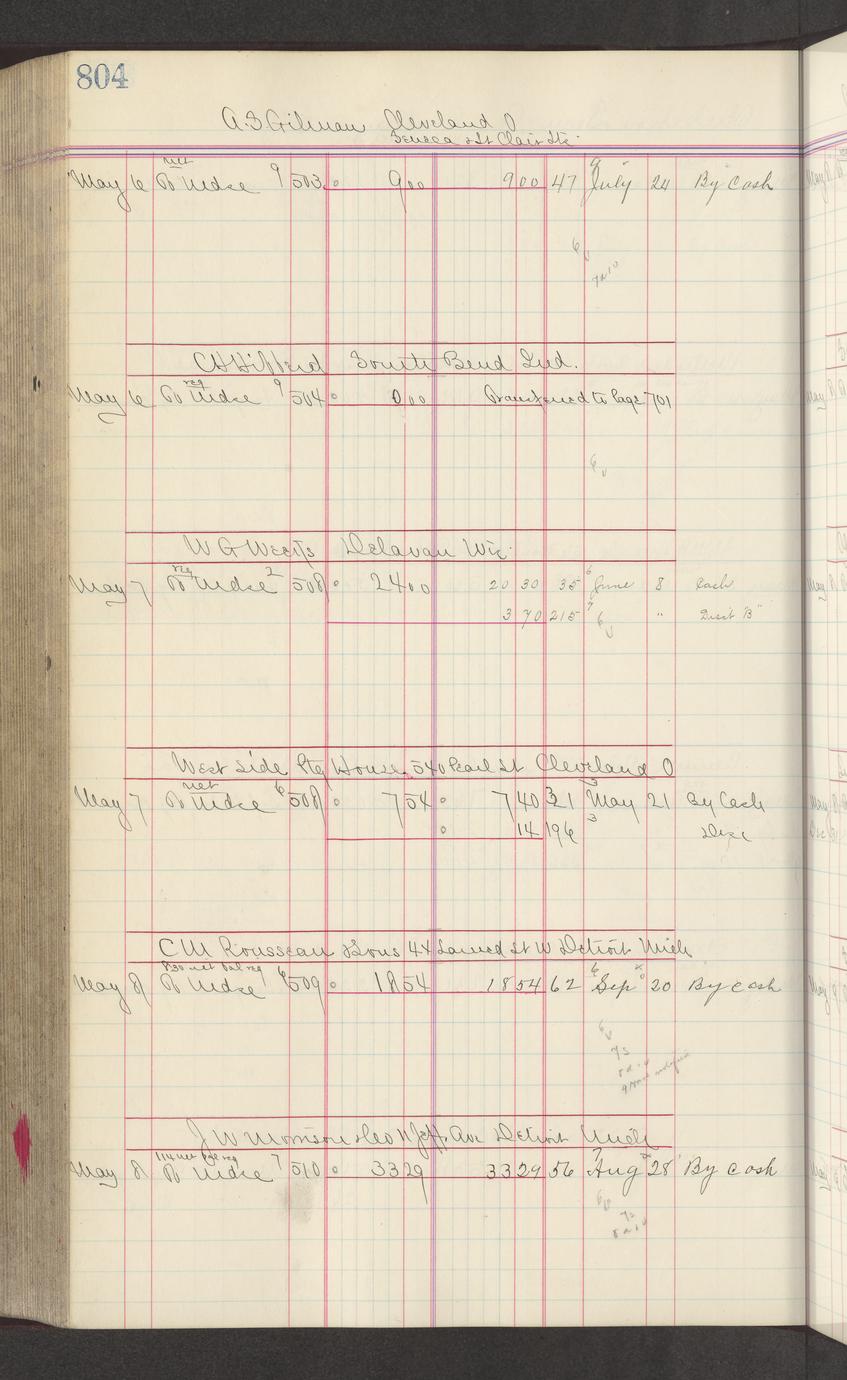 804
A.S. Gilman Cleveland O
Seneca & St Clair Sts.
net
May 6 To Mdse 9 503 9 00 9 00 47 9 July 24 By Cash
South Bend Ind.
reg
May 6 To Mdse 9 504 0 00 Transferred to Page 701
W G Weeks Delavan Wis.
reg
May 7 To Mdse 2 508 24 00 20 30 35 6 June 8 Cash
3 70 215 7 " Disct "B"
West Side Ptg House 540 Pearl St Cleveland O
net
May 7 To Mdse 6 508 7 54 7 40 321 3 May 21 By Cash
14 196 3 Disc
C M Rousseau & Sons 44 Larned St W Detroit Mich
830 net bal reg
May 8 To Mdse 6 509 18 54 18 54 62 6 Sep 20 By Cash
J W Morrison & Co 11 Jeff. Ave Detroit Mich
114 net bal reg
May 8 To Mdse 7 510 33 29 33 29 56 7 Aug 28 By Cash